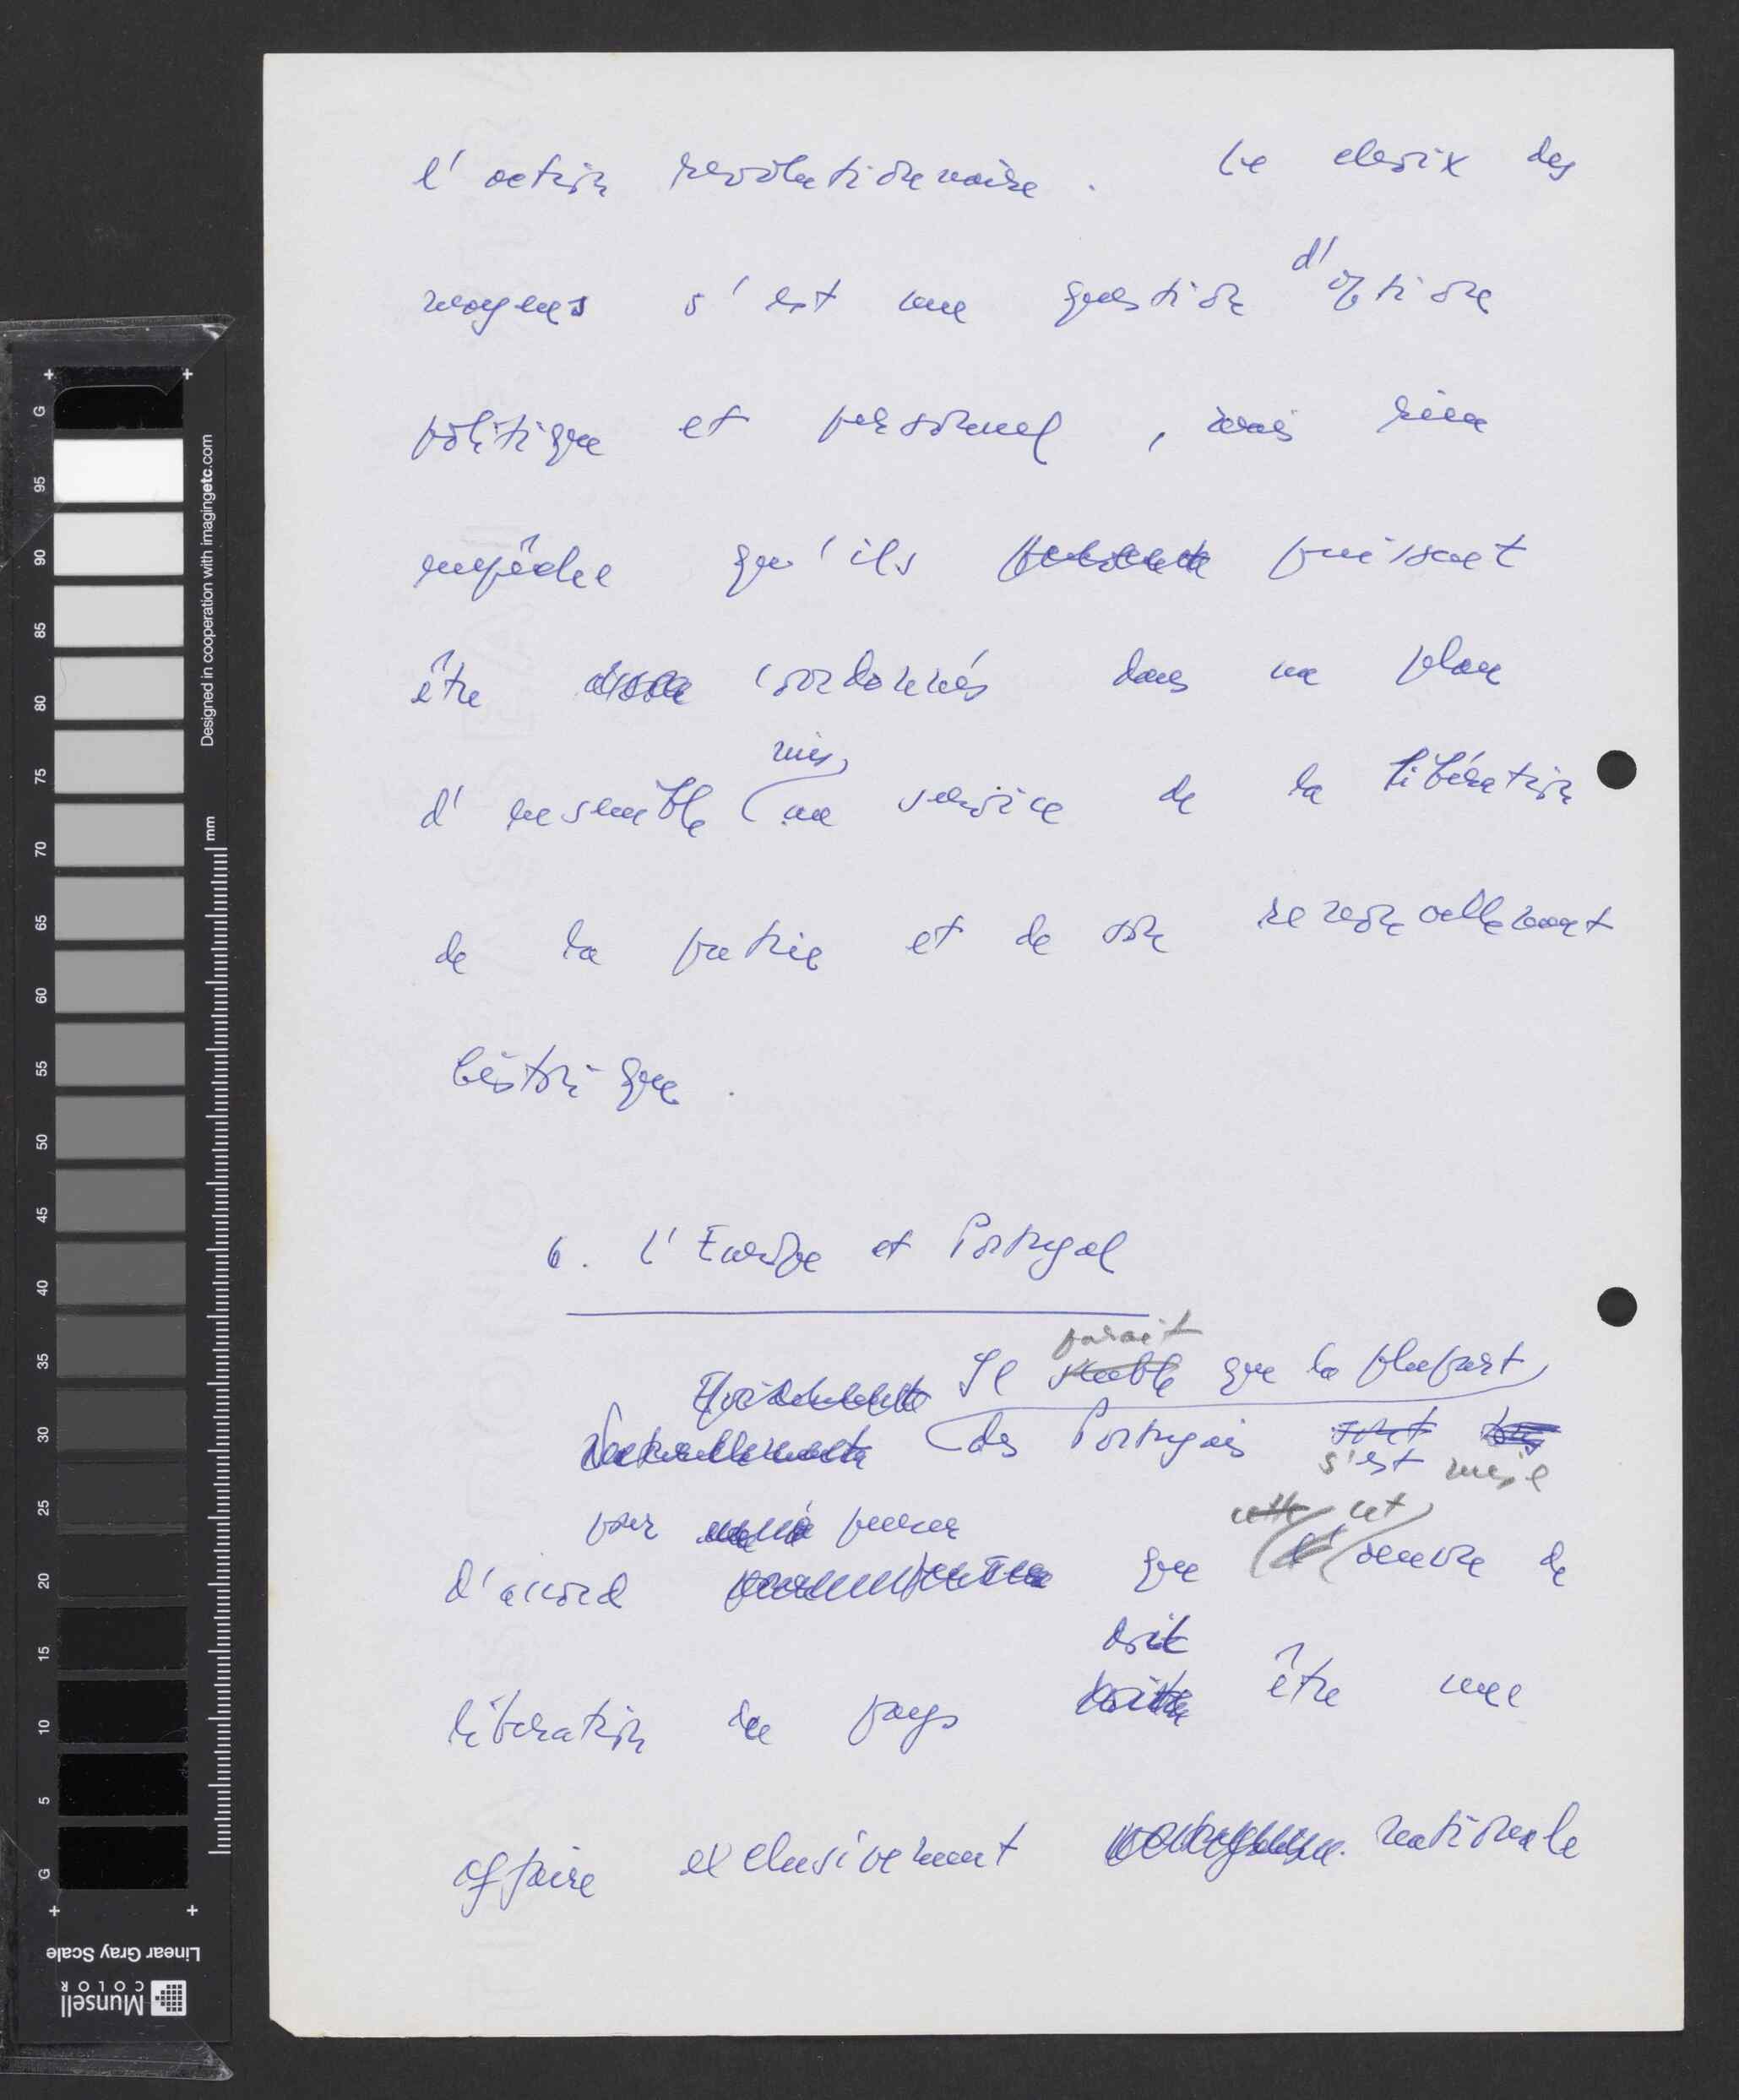 l'action revolutionnaire. Le choix des
moyens s'est une question d'option
politique et personnel, mais rien
empêche qu'ils puissent
être coordonnés dans un plan
d'ensemble mis au service de la libération
de la patrie et de son renouvellement
historique.
6. L'Europe et Portugal
parait
Evidemment Il semble que la plupart
Naturellement des Portugais sont
s'est mise
pour penser cette cet
d'accord que l'oeuvre de
doit
libération du pays doit être une
affaire exclusivement nationale
Designed in cooperation with imagingetc.com
mm
G 95 90 85 80 75 70 65 60 55 50 45 40 35 30 25 20 15 10 5 G
Linear Gray Scale
Munsell
COLOR